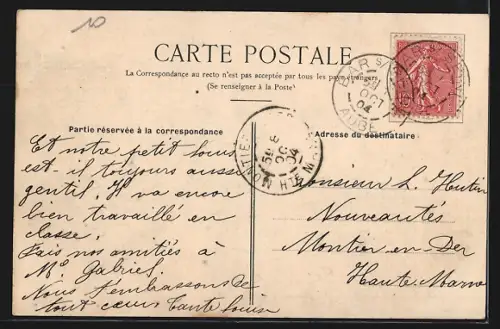 10
CARTE POSTALE
La Correspondance au recto n'est pas acceptée par tous les pays étrangers
(Se renseigner à la Poste)
BAR S
OCT
04
AUBE
Partie réservée à la correspondance
Adresse du destinataire
MONTIER
Hte MARNE
OC
04
Et notre petit Louis
est-il toujours aussi
gentil. Il va encore
bien travaillé en
classe.
Fais nos amitiés à
Mr Gabriel.
Nous t'embrassons de
tout cœur Tante Louise
Monsieur L. Hutin
Nouveautés
Montier en Der
Haute Marne